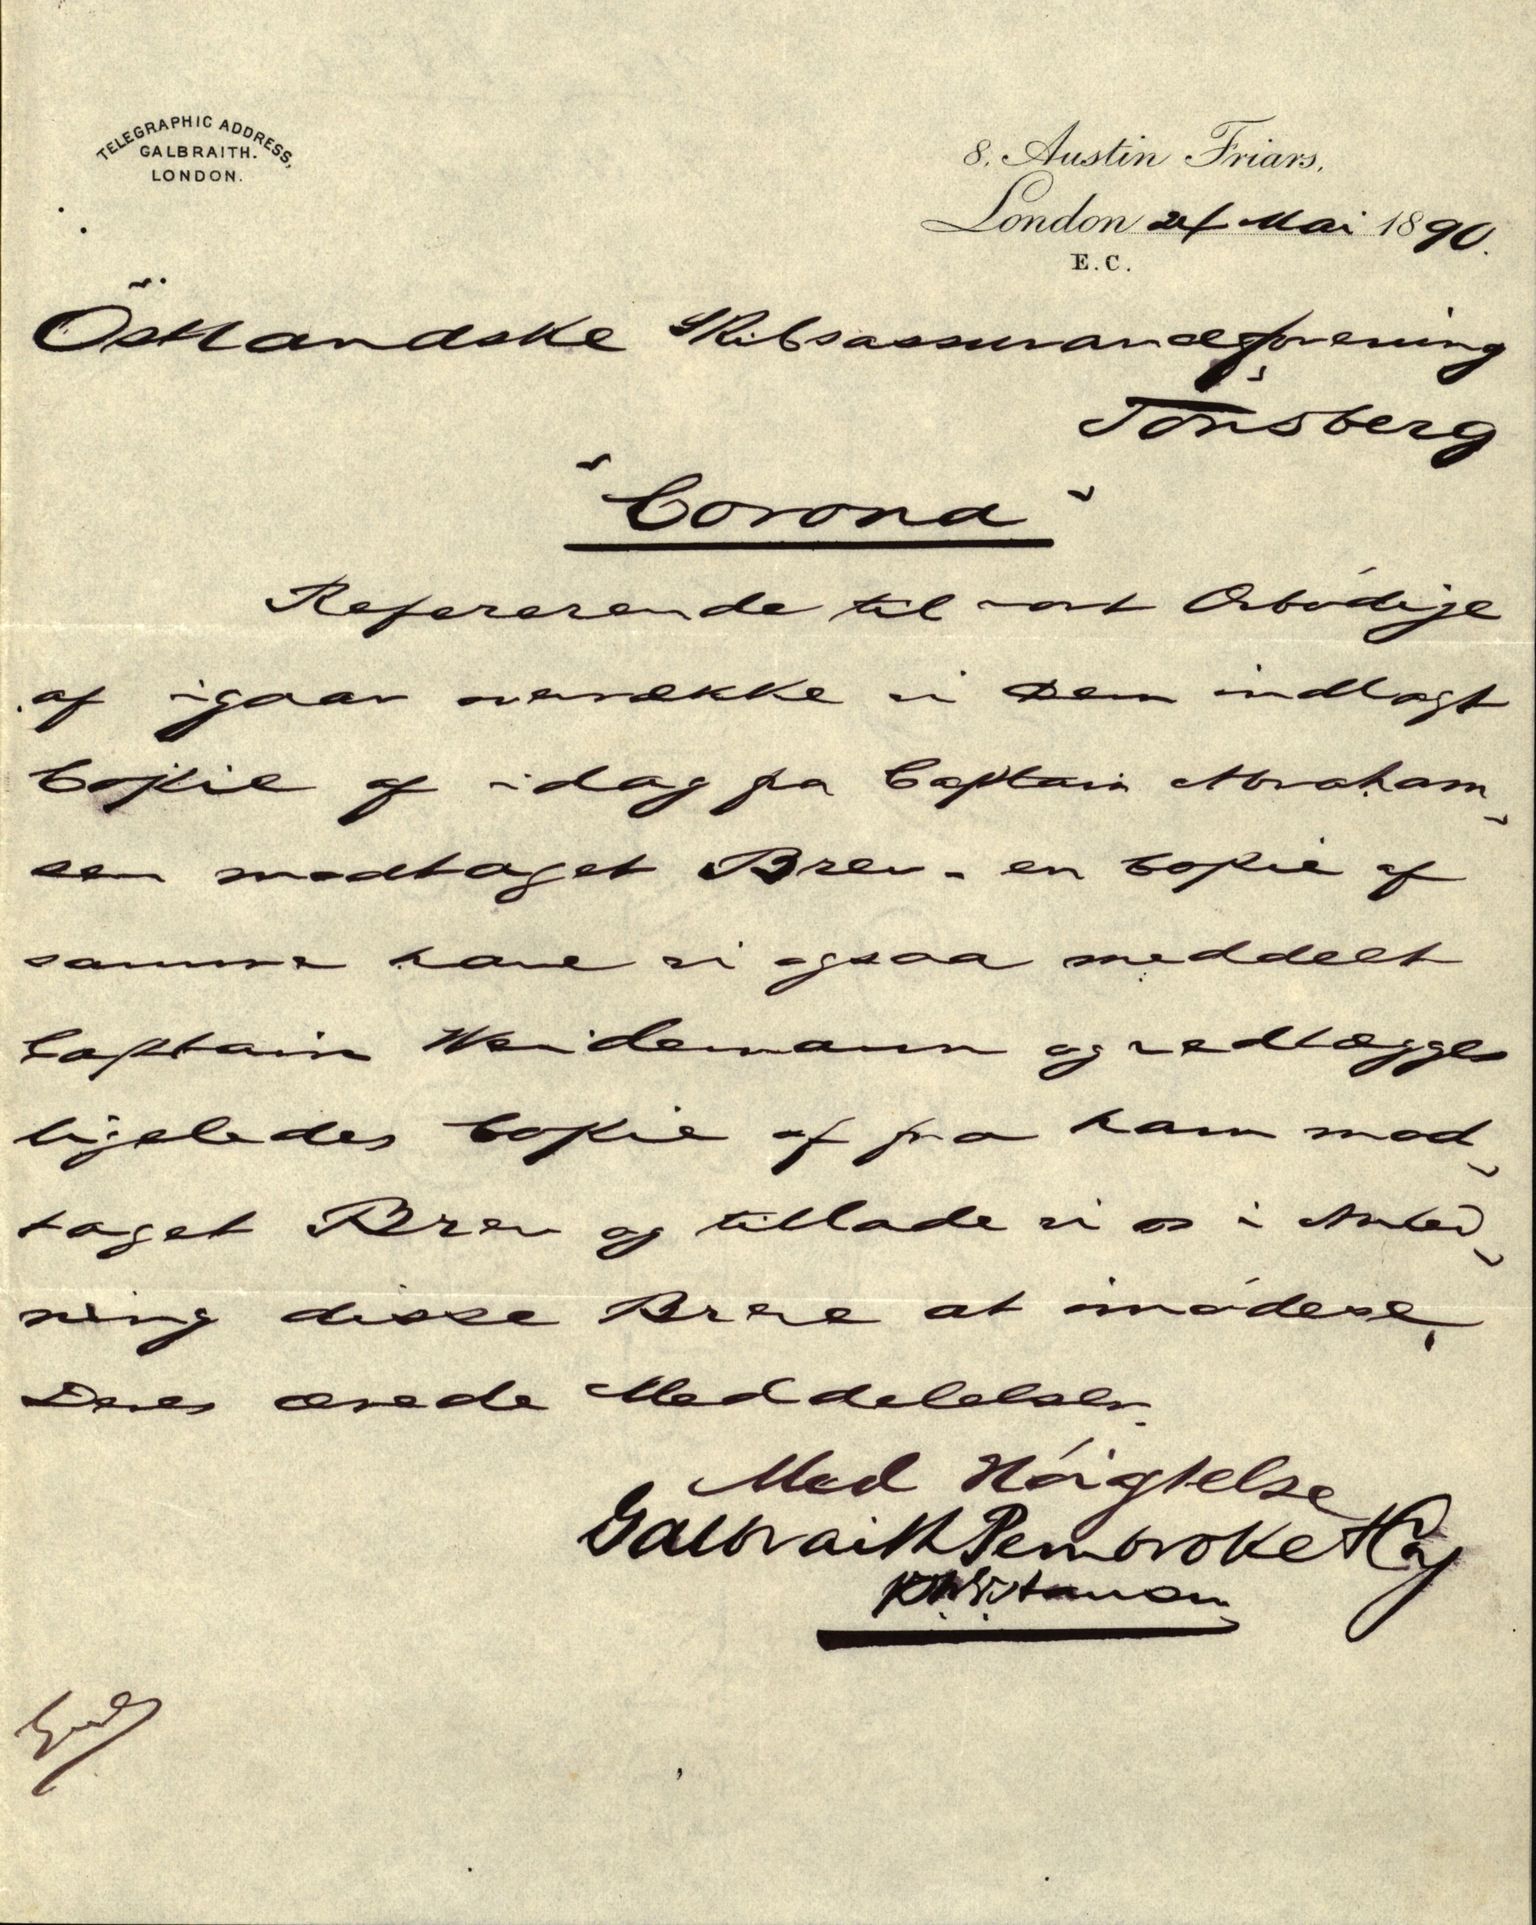 TELEGRAPHIC ADDRESS,
GALBRAITH.
LONDON.
8. Austin Friars,
London 24 Mai 1890.
E.C.
Östlandske Skibsassuranceforening
Tönsberg
"Corona"
Refererende til vort Ærbödige
af igaar oversække vi Dem indlagt
Copie af idag fra Captain Abraham-
sen modtaget Brev - en Copie af
samme have vi ogsaa meddelt
Captain Weidemann og vedlægges
ligeledes Copie af fra ham mod-
taget Brev og tillade vi os i Anled-
ning disse Breve at imödese
Deres ærede Meddelelser.
Med Höigtelse
Galbraith Pembroke & Co